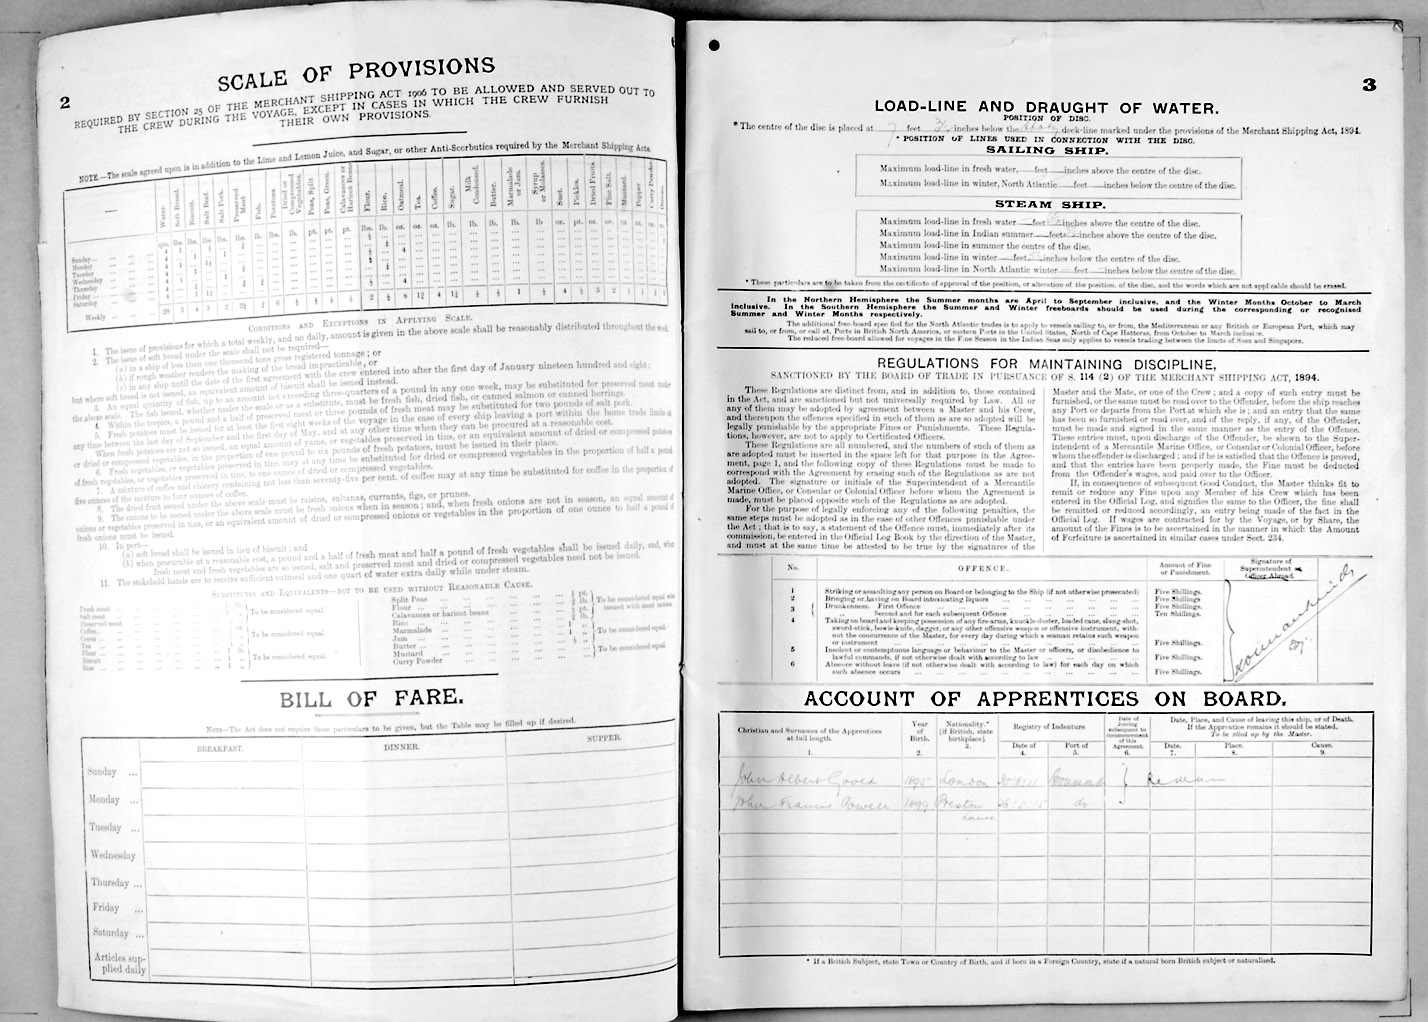 2
SCALE OF PROVISIONS
REQUIRED BY SECTION 25 OF THE MERCHANT SHIPPING ACT 1906 TO BE ALLOWED AND SERVED OUT TO
THE CREW DURING THE VOYAGE, EXCEPT IN CASES IN WHICH THE CREW FURNISH
THEIR OWN PROVISIONS.
NOTE.—The scale agreed upon is in addition to the Lime and Lemon Juice, and Sugar, or other Anti-Scorbutics required by the Merchant Shipping Acts.
Water. Soft Bread. Biscuit. Salt Beef. Salt Pork. Preserved Meat. Fish. Potatoes. Dried or Compressed Vegetables. Peas, Split Peas, Green. Calavances or Haricot Beans Flour. Rice. Oatmeal. Tea. Coffee. Sugar. Milk Condensed. Butter. Marmalade or Jam. Syrup or Molasses. Suet. Pickles. Dried Fruits. Fine Salt. Mustard. Pepper Curry Powder Onions.
Sunday
Monday
Tuesday
Wednesday
Thursday
Friday
Saturday
Weekly
CONDITIONS AND EXCEPTIONS IN APPLYING SCALE.
1. The issue of provisions for which a total weekly, and no daily, amount is given in the above scale shall be reasonably distributed throughout the week
2. The issue of soft bread under the scale shall not be required—
(a) in a ship of less than one thousand tons gross registered tonnage; or
(b) if rough weather renders the making of the bread impracticable; or
(c) in any ship until the date of the first agreement with the crew entered into after the first day of January nineteen hundred and eight;
but where soft bread is not issued, an equivalent amount of biscuit shall be issued instead.
3. An equal quantity of fish, up to an amount not exceeding three-quarters of a pound in any one week, may be substituted for preserved meat under
the above scale. The fish issued, whether under the scale or as a substitute, must be fresh fish, dried fish, or canned salmon or canned herrings.
4. Within the tropics, a pound and a half of preserved meat or three pounds of fresh meat may be substituted for two pounds of salt pork.
5. Fresh potatoes must be issued for at least the first eight weeks of the voyage in the case of every ship leaving a port within the home trade limits at
any time between the last day of September and the first day of May, and at any other time when they can be procured at a reasonable cost.
When fresh potatoes are not so issued, an equal amount of yams, or vegetables preserved in tins, or an equivalent amount of dried or compressed potatoes
or dried or compressed vegetables, in the proportion of one pound to six pounds of fresh potatoes, must be issued in their place.
6. Fresh vegetables, or vegetables preserved in tins, may at any time be substituted for dried or compressed vegetables in the proportion of half a pound
of fresh vegetables, or vegetables preserved in tins, to one ounce of dried or compressed vegetables.
7. A mixture of coffee and chicory containing not less than seventy-five per cent. of coffee may at any time be substituted for coffee in the proportion of
five ounces of the mixture to four ounces of coffee.
8. The dried fruit issued under the above scale must be raisins, sultanas, currants, figs, or prunes.
9. The onions to be issued under the above scale must be fresh onions when in season; and, when fresh onions are not in season, an equal amount of
onions or vegetables preserved in tins, or an equivalent amount of dried or compressed onions or vegetables in the proportion of one ounce to half a pound of
fresh onions must be issued.
10. In port—
(a) soft bread shall be issued in lieu of biscuit; and
(b) when procurable at a reasonable cost, a pound and a half of fresh meat and half a pound of fresh vegetables shall be issued daily, and, when
fresh meat and fresh vegetables are so issued, salt and preserved meat and dried or compressed vegetables need not be issued.
11. The stokehold hands are to receive sufficient oatmeal and one quart of water extra daily while under steam.
SUBSTITUTES AND EQUIVALENTS—NOT TO BE USED WITHOUT REASONABLE CAUSE.
Fresh meat
Salt meat
Preserved meat
To be considered equal.
Coffee
Cocoa
Tea
To be considered equal.
Flour
Biscuit
Rice
To be considered equal.
Split Peas
Flour
Calavances or haricot beans
Rice
To be considered equal when issued with meat rations
Marmalade
Jam
Butter
To be considered equal.
Mustard
Curry Powder
To be considered equal.
BILL OF FARE.
NOTE—The Act does not require these particulars to be given, but the Table may be filled up if desired.
BREAKFAST. DINNER. SUPPER.
Sunday ...
Monday ...
Tuesday ...
Wednesday
Thursday ...
Friday ...
Saturday ...
Articles sup-
plied daily
3
LOAD-LINE AND DRAUGHT OF WATER.
POSITION OF DISC.
* The centre of the disc is placed at 7 feet inches below the deck-line marked under the provisions of the Merchant Shipping Act, 1894.
* POSITION OF LINES USED IN CONNECTION WITH THE DISC.
SAILING SHIP.
Maximum load-line in fresh water, feet inches above the centre of the disc.
Maximum load-line in winter, North Atlantic feet inches below the centre of the disc.
STEAM SHIP.
Maximum load-line in fresh water feet inches above the centre of the disc.
Maximum load-line in Indian summer feet inches above the centre of the disc.
Maximum load-line in summer the centre of the disc.
Maximum load-line in winter feet inches below the centre of the disc.
Maximum load-line in North Atlantic winter feet inches below the centre of the disc.
* These particulars are to be taken from the certificate of approval of the position, or alteration of the position, of the disc, and the words which are not applicable should be erased.
In the Northern Hemisphere the Summer months are April to September inclusive, and the Winter Months October to March
inclusive. In the Southern Hemisphere the Summer and Winter freeboards should be used during the corresponding or recognised
Summer and Winter Months respectively.
The additional free-board specified for the North Atlantic trades is to apply to vessels sailing to, or from, the Mediterranean or any British or European Port, which may
sail to, or from, or call at, Ports in British North America, or eastern Ports in the United States, North of Cape Hatteras, from October to March inclusive.
The reduced free-board allowed for voyages in the Fine Season in the Indian Seas only applies to vessels trading between the limits of Suez and Singapore.
REGULATIONS FOR MAINTAINING DISCIPLINE,
SANCTIONED BY THE BOARD OF TRADE IN PURSUANCE OF S. 114 (2) OF THE MERCHANT SHIPPING ACT, 1894.
These Regulations are distinct from, and in addition to, those contained
in the Act, and are sanctioned but not universally required by Law. All or
any of them may be adopted by agreement between a Master and his Crew,
and thereupon the offences specified in such of them as are so adopted will be
legally punishable by the appropriate Fines or Punishments. These Regula-
tions, however, are not to apply to Certificated Officers.
These Regulations are all numbered, and the numbers of such of them as
are adopted must be inserted in the space left for that purpose in the Agree-
ment, page 1, and the following copy of these Regulations must be made to
correspond with the Agreement by erasing such of the Regulations as are not
adopted. The signature or initials of the Superintendent of a Mercantile
Marine Office, or Consular or Colonial Officer before whom the Agreement is
made, must be placed opposite such of the Regulations as are adopted.
For the purpose of legally enforcing any of the following penalties, the
same steps must be adopted as in the case of other Offences punishable under
the Act; that is to say, a statement of the Offence must, immediately after its
commission, be entered in the Official Log Book by the direction of the Master,
and must at the same time be attested to be true by the signatures of the
Master and the Mate, or one of the Crew; and a copy of such entry must be
furnished, or the same must be read over to the Offender, before the ship reaches
any Port or departs from the Port at which she is; and an entry that the same
has been so furnished or read over, and of the reply, if any, of the Offender,
must be made and signed in the same manner as the entry of the Offence.
These entries must, upon discharge of the Offender, be shewn to the Super-
intendent of a Mercantile Marine Office, or Consular or Colonial Officer, before
whom the offender is discharged; and if he is satisfied that the Offence is proved,
and that the entries have been properly made, the Fine must be deducted
from the Offender's wages, and paid over to the Officer.
If, in consequence of subsequent Good Conduct, the Master thinks fit to
remit or reduce any Fine upon any Member of his Crew which has been
entered in the Official Log, and signifies the same to the Officer, the fine shall
be remitted or reduced accordingly, an entry being made of the fact in the
Official Log. If wages are contracted for by the Voyage, or by Share, the
amount of the Fines is to be ascertained in the manner in which the Amount
of Forfeiture is ascertained in similar cases under Sect. 234.
No. OFFENCE. Amount of Fine or Punishment. Signature of Superintendent or Officer Abroad.
1 Striking or assaulting any person on Board or belonging to the Ship (if not otherwise prosecuted) Five Shillings.
2 Bringing or having on Board intoxicating liquors Five Shillings
3 Drunkenness. First Offence Five Shillings.
Second and for each subsequent Offence Ten Shillings.
4 Taking on board and keeping possession of any fire-arms, knuckle-duster, loaded cane, slung-shot,
sword-stick, bowie-knife, dagger, or any other offensive weapon or offensive instrument, with-
out the concurrence of the Master, for every day during which a seaman retains such weapon
or instrument Five Shillings.
5 Insolent or contemptuous language or behaviour to the Master or officers, or disobedience to
lawful commands, if not otherwise dealt with according to law Five Shillings.
6 Absence without leave (if not otherwise dealt with according to law) for each day on which
such absence occurs Five Shillings.
ACCOUNT OF APPRENTICES ON BOARD.
Christian and Surnames of the Apprentices at full length. 1.
Year of Birth. 2.
Nationality.* [if British, state birthplace]. 3.
Registry of Indenture
Date of 4.
Port of 5.
Date of Joining subsequent to commencement of this Agreement. 6.
Date, Place, and Cause of leaving this ship, or of Death.
If the Apprentice remains it should be stated.
To be filled up by the Master.
Date. 7.
Place. 8.
Cause. 9.
John Albert 1895 London 30·8·11 Remain
John Francis Powell 1899 Preston 26·5·15 do
Lancs
* If a British Subject, state Town or Country of Birth, and if born in a Foreign Country, state if a natural born British subject or naturalised.